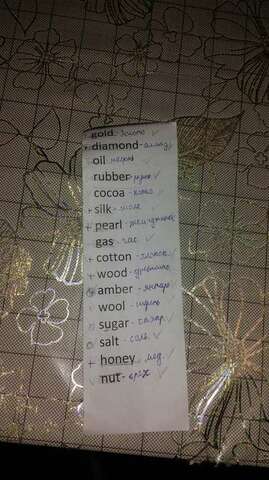 gold - золото
+ diamond - алмаз ✓
oil - нефть ✓
rubber ✓
cocoa - какао ✓
+ silk ✓
+ pearl - жемчужина
gas - газ ✓
+ cotton - хлопок ✓
+ wood - древесина
amber - янтарь ✓
wool - шерсть ✓
sugar - сахар ✓
salt - соль ✓
+ honey - мед ✓
nut - орех ✓